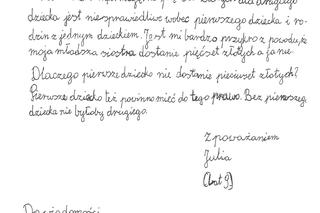 dziecka jest niesprawiedliwe wobec pierwszego dziecka i ro-
dzin z jednym dzieckiem. Jest mi bardzo przykro z powodu, że
moja młodsza siostra dostanie pięćset złotych a ja nie.
Dlaczego pierwsze dziecko nie dostanie pięciuset złotych?
Pierwsze dziecko też powinno mieć do tego prawo. Bez pierwszego
dziecka nie byłoby drugiego.
Z poważaniem
Julia
(lat 9)
Do wiadomości